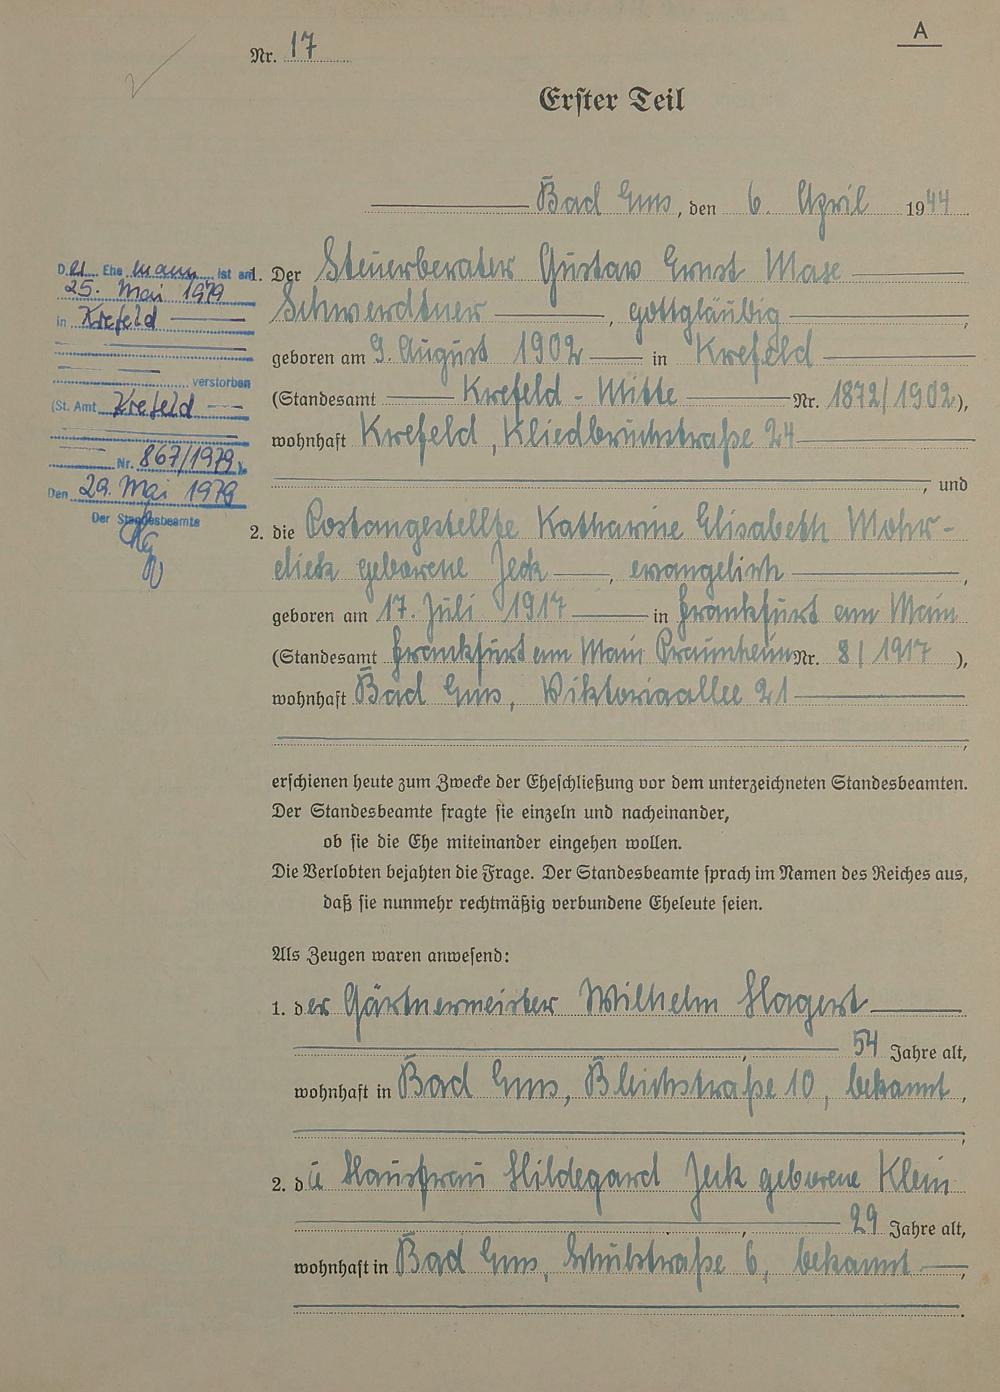 A
Nr. 17
Erster Teil
Bad Ems, den 6. April 1944
1. Der Steuerberater Gustav Ernst Maxe
Schwerdtner, gottgläubig,
geboren am 9. August 1902 in Krefeld
(Standesamt Krefeld-Mitte Nr. 1872/1902),
wohnhaft Krefeld, Kliedbruchstraße 24
, und
2. die Postangestellte Katharine Elisabeth Mohr-
dieck geborene Jeck, evangelisch,
geboren am 17. Juli 1917 in Frankfurt am Main
(Standesamt Frankfurt am Main Praunheim Nr. 8/1917),
wohnhaft Bad Ems, Viktoriaallee 21
,
erschienen heute zum Zwecke der Eheschließung vor dem unterzeichneten Standesbeamten.
Der Standesbeamte fragte sie einzeln und nacheinander,
ob sie die Ehe miteinander eingehen wollen.
Die Verlobten bejahten die Frage. Der Standesbeamte sprach im Namen des Reiches aus,
daß sie nunmehr rechtmäßig verbundene Eheleute seien.
Als Zeugen waren anwesend:
1. der Gärtnermeister Wilhelm Hagert
, 54 Jahre alt,
wohnhaft in Bad Ems, Bleichstraße 10, bekannt,
;
2. die Hausfrau Hildegard Jeck geborene Klein
, 29 Jahre alt,
wohnhaft in Bad Ems, Schulstraße 6, bekannt,
.
Der Ehemann ist am
25. Mai 1979
in Krefeld
verstorben
(St. Amt Krefeld
Nr. 867/1979).
Den 29. Mai 1979
Der Standesbeamte